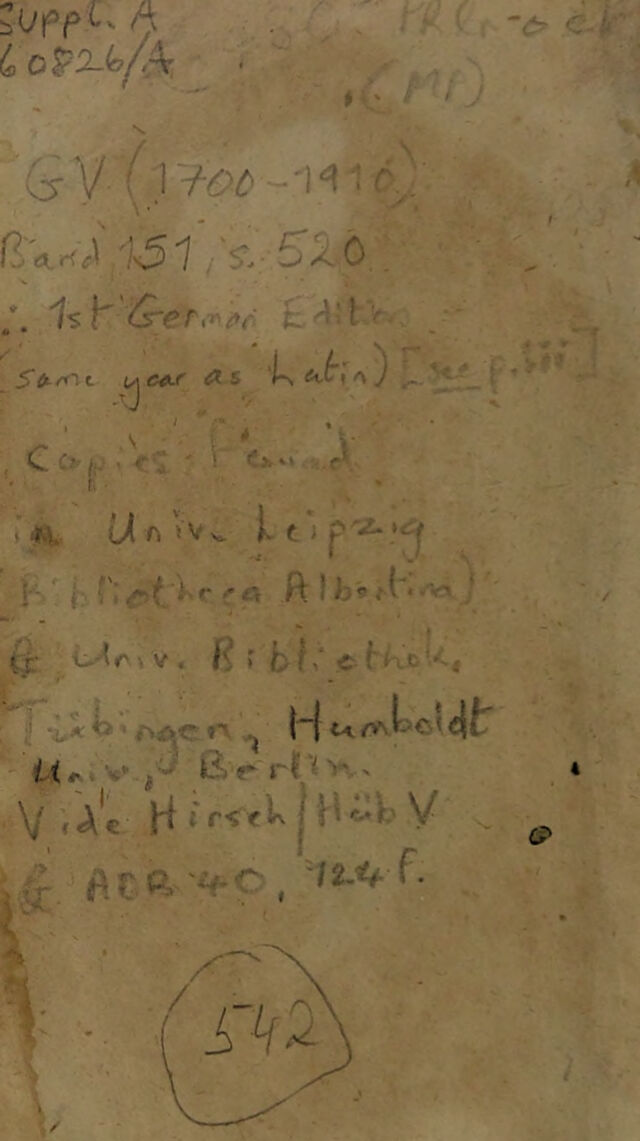 Suppl. A
60826/A
(MP)
GV (1700-1910)
Band 151, s. 520
∴ 1st German Edition
(same year as Latin) [see p. iii]
Copies found
in Univ. Leipzig
Bibliotheca Albertina)
& Univ. Bibliothek,
Tübingen, Humboldt
Univ., Berlin.
Vide Hirsch/Hüb V
& ADB 40, 124 f.
542